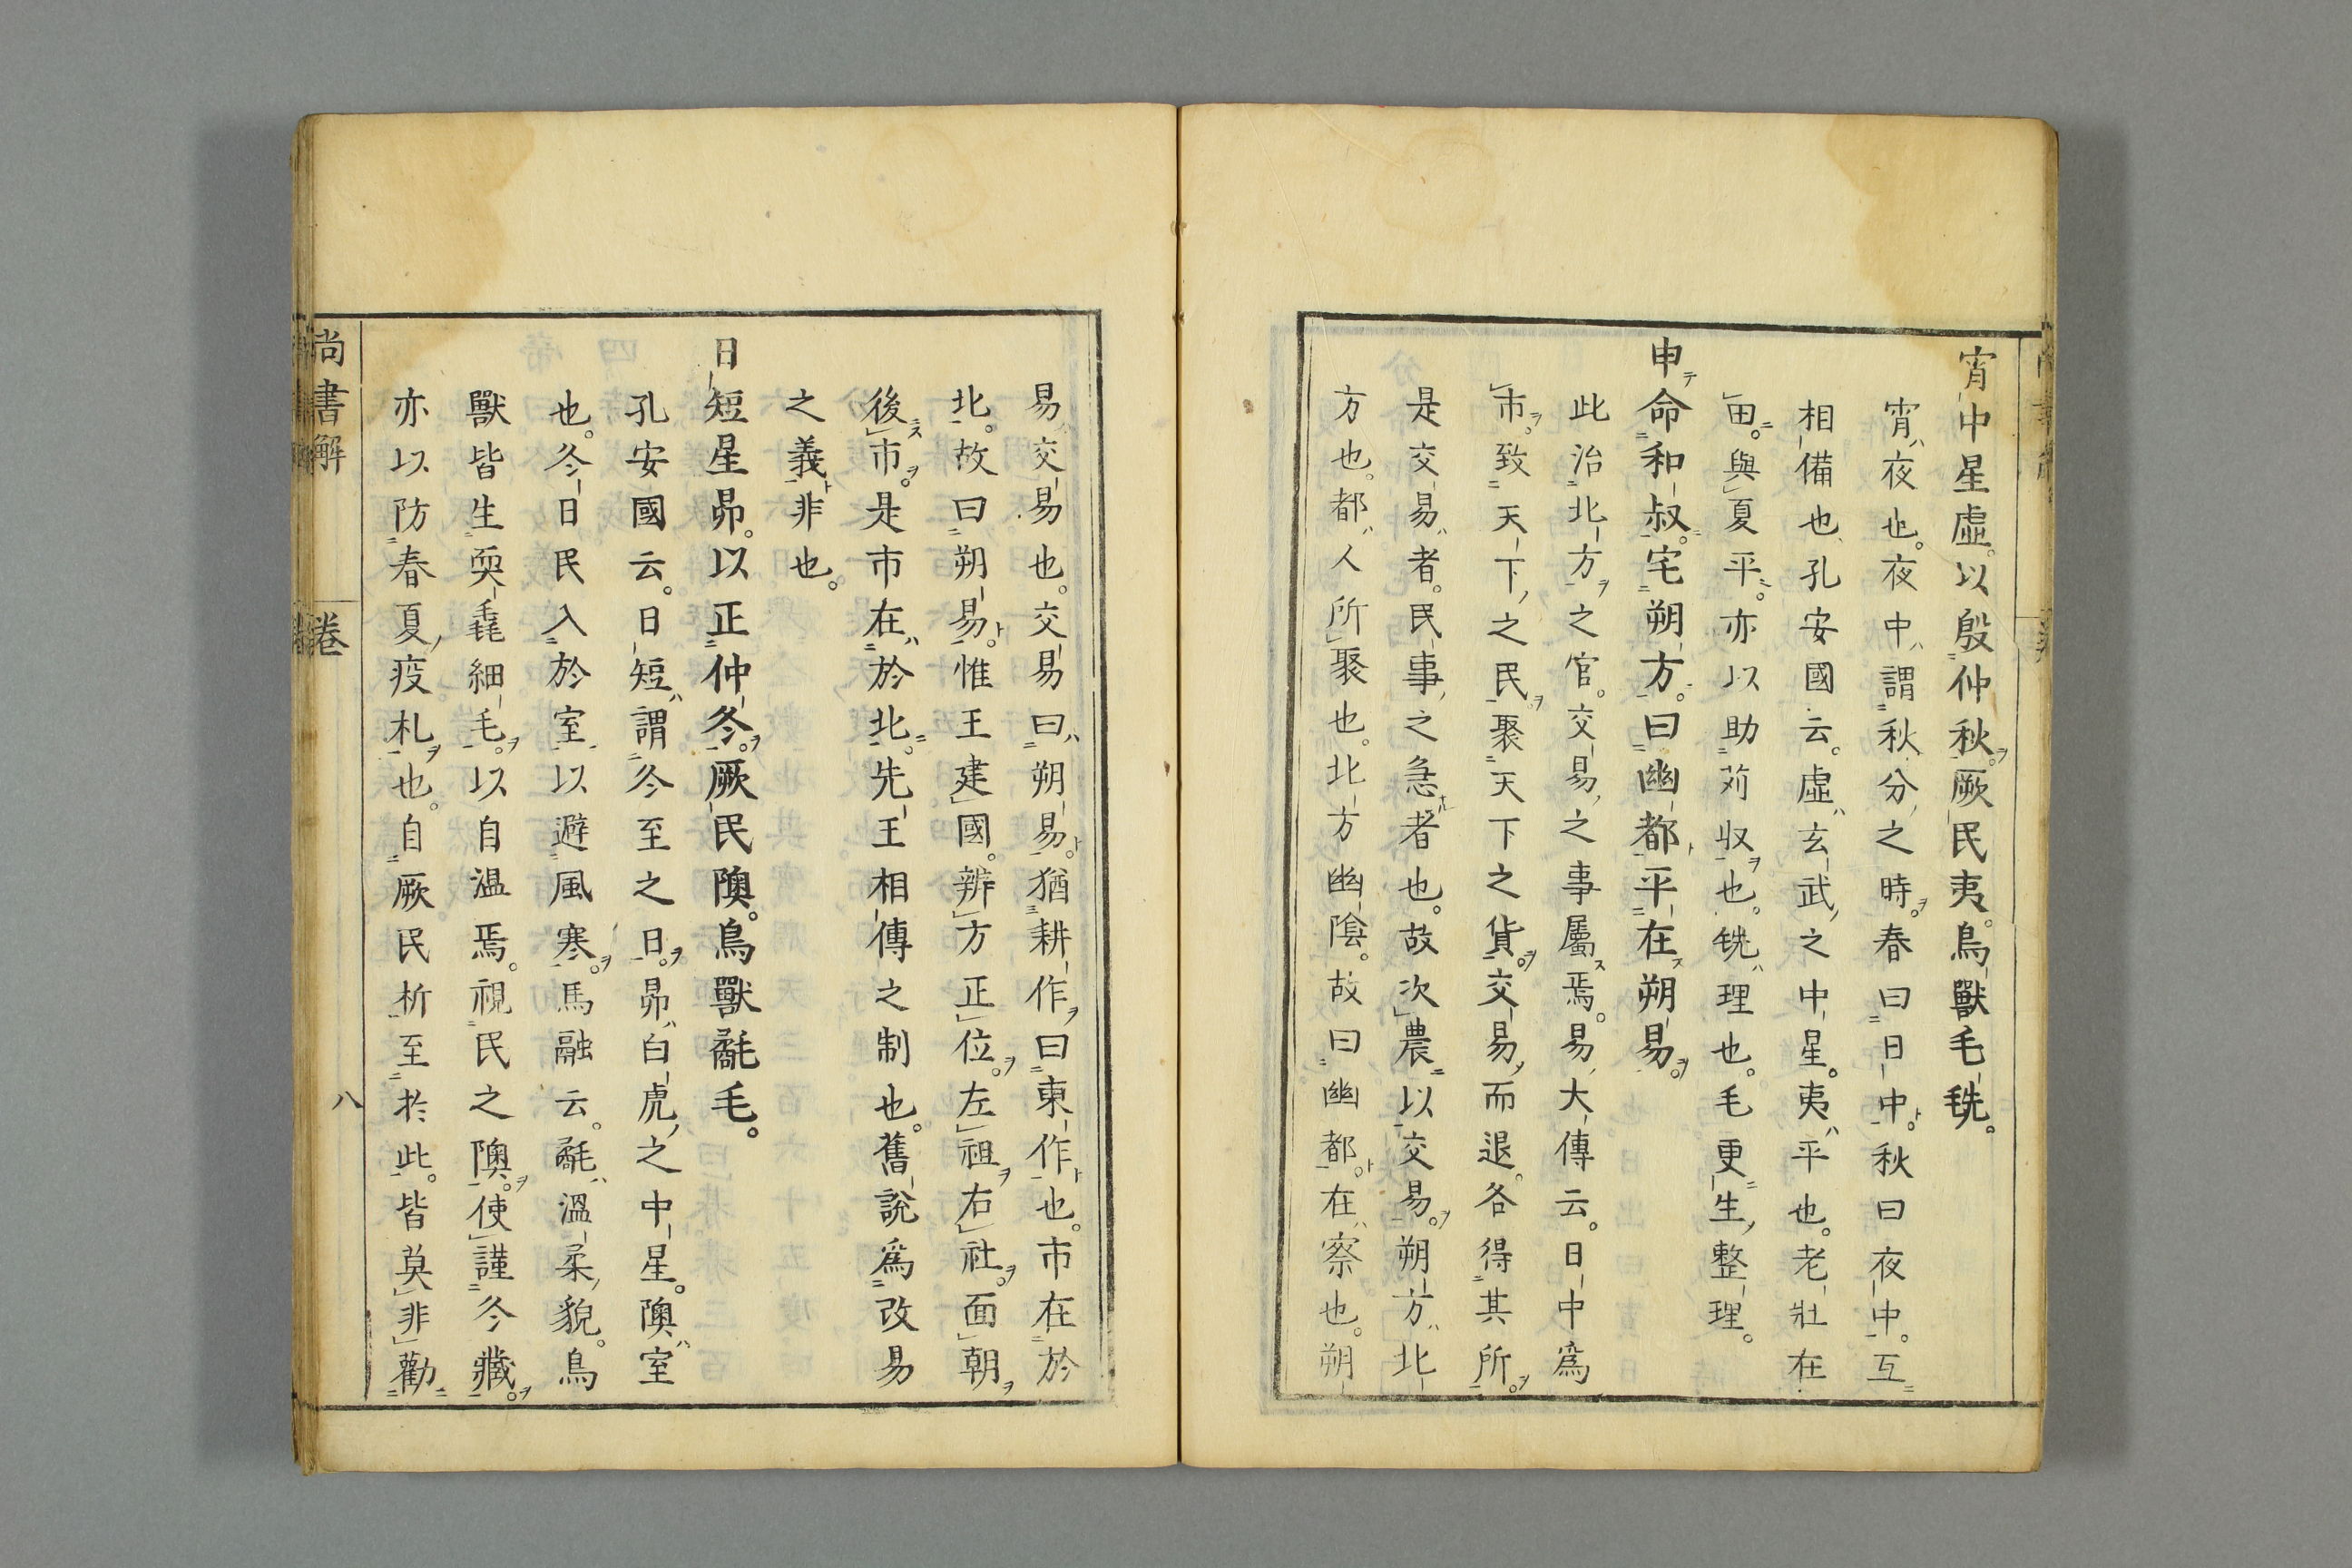 宵中星虛。以殷仲秋。厥民夷。鳥獸毛毨。
宵夜也。夜中謂秋分之時。春曰日中。秋曰夜中。互
相備也孔安國云。虛玄武之中星。夷平也。老壯在
田。與夏平。亦以助苅收也。毨理也。毛更生整理。
申命和叔。宅朔方。曰幽都。平在朔易。
此治北方之官。交易之事屬焉。易大傳云。日中爲
市。致天下之民。聚天下之貨。交易而退。各得其所。
是交易者。民事之急者也。故次農以交易。朔方北
方也。都人所聚也。北方幽陰。故曰幽都。在察也。朔
易交易也。交易曰朔易。猶耕作曰東作也。市在於
北。故曰朔易。惟王建國。辨方正位。左祖右社。面朝
後市。是市在於北。先王相傳之制也。舊說爲改易
之義非也。
日短星昴。以正仲冬。厥民隩。鳥獸氄毛。
孔安國云。日短謂冬至之日。昴白虎之中星。隩室
也。冬日民入於室以避風寒。馬融云。氄溫柔貌。鳥
獸皆生耎毳細毛。以自溫焉。視民之隩。使謹冬藏。
亦以防春夏疫札也。自厥民析至於此。皆莫非勸
尚書解 卷 八